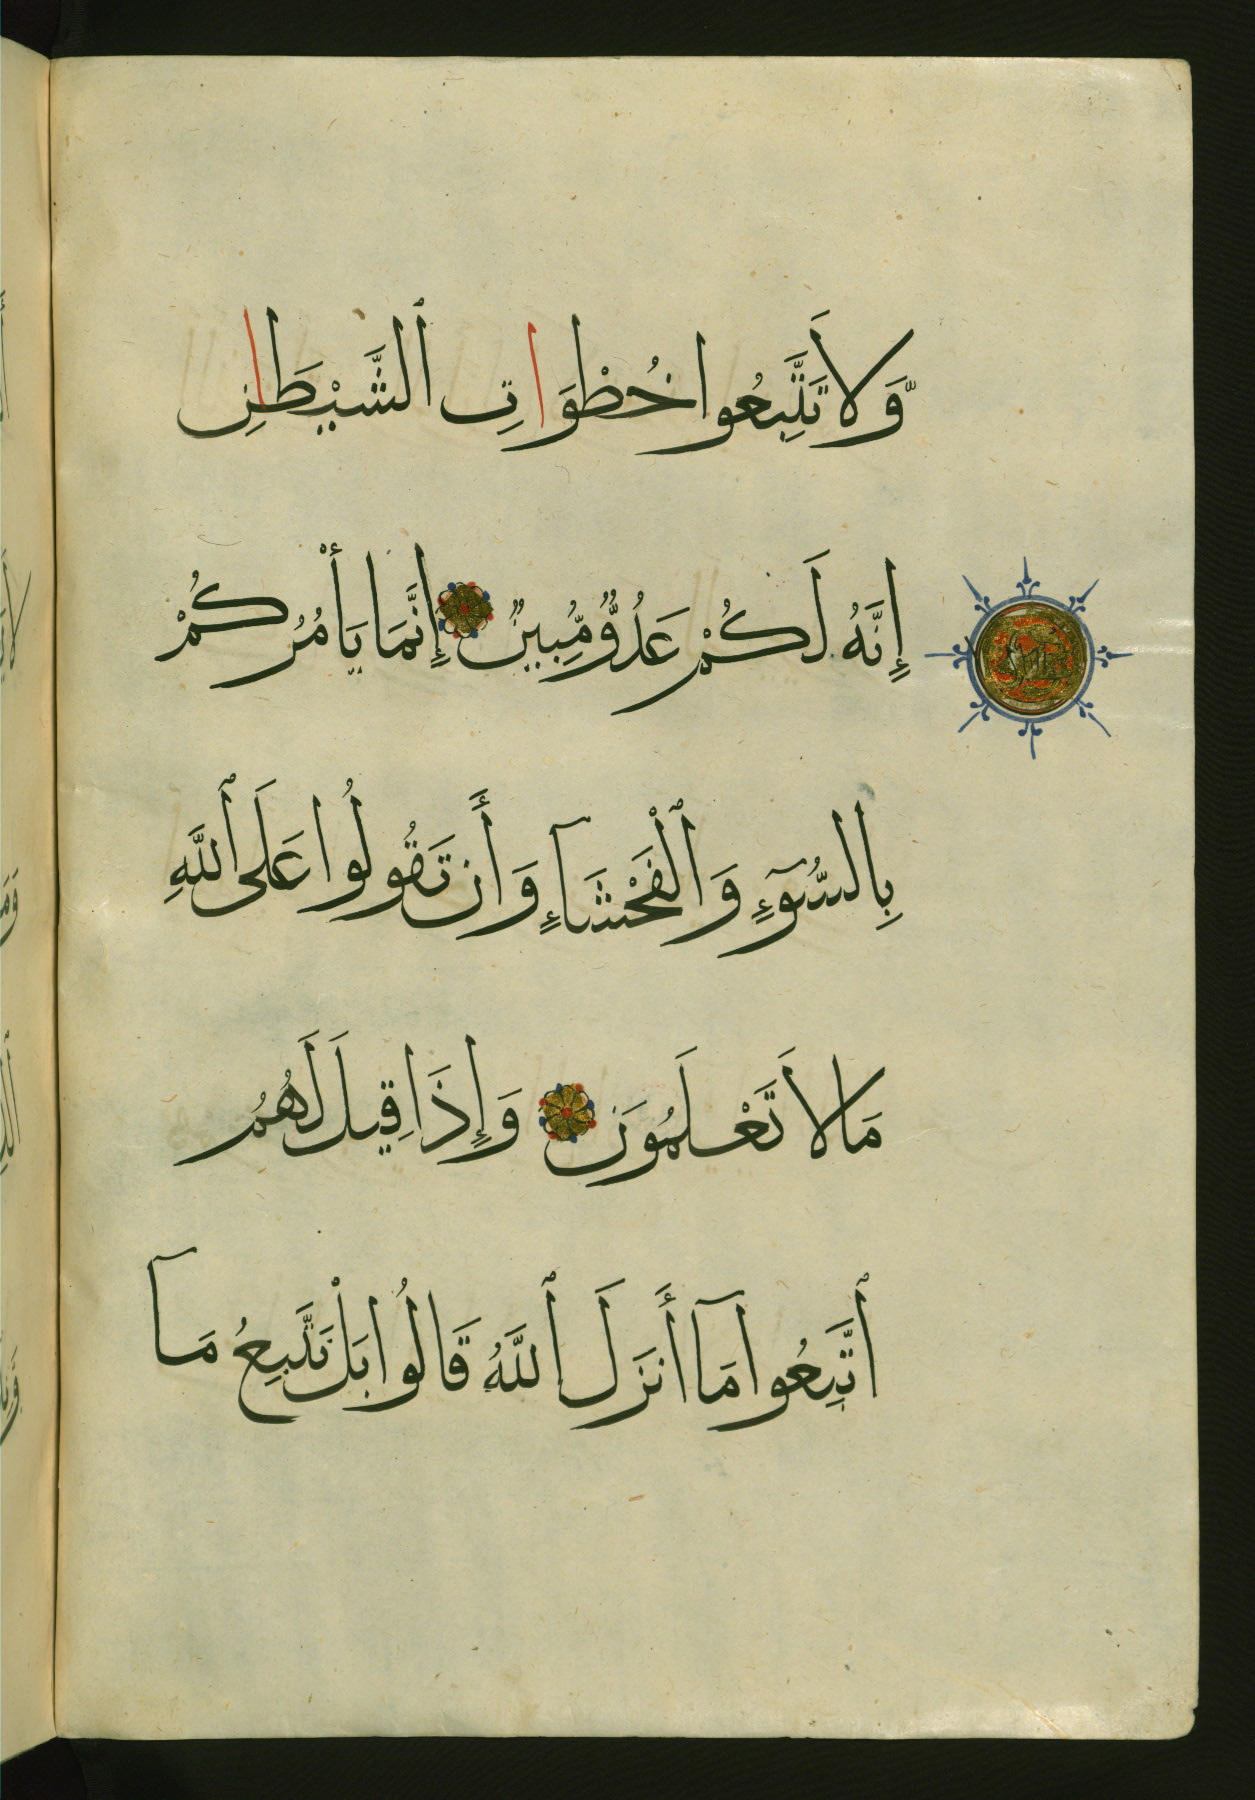 وَّلَا تَتَّبِعُوا خُطْوَاتِ ٱلشَّيْطَانِ
إِنَّهُ لَكُمْ عَدُوٌّ مُّبِينٌ إِنَّمَا يَأْمُرُكُمْ
بِالسُّوٓءِ وَٱلْفَحْشَآءِ وَأَن تَقُولُوا عَلَى ٱللَّهِ
مَا لَا تَعْلَمُونَ وَإِذَا قِيلَ لَهُمُ
ٱتَّبِعُوا مَآ أَنزَلَ ٱللَّهُ قَالُوا بَلْ نَتَّبِعُ مَآ